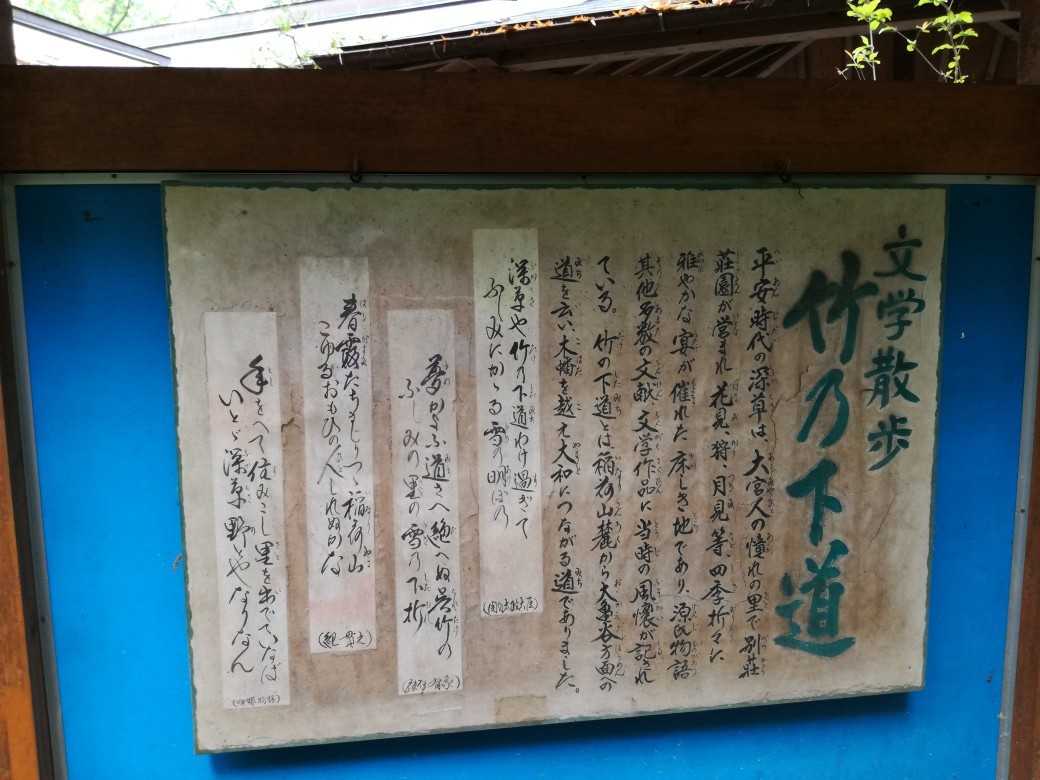 文学散歩
竹乃下道
平安時代の深草は、大宮人の憧れの里で別荘
荘園が営まれ花見、狩、月見等四季折々に
雅やかな宴が催れた床しき地であり、源氏物語
其他多数の文献、文学作品に当時の風懐が記され
ている。竹の下道とは、稲荷山麓から大亀谷方面への
道を云い、木幡を越え大和につながる道でありました。
深草や竹の下道わけ過ぎて
ふしみにかゝる雪の明ぼの
夢かよふ道さへ絶へぬ呉竹の
ふしみの里の雪の下折
春霞たちましりつゝ稲荷山
こゆるおもひの人しれぬかな
(紀貫之)
年をへて住みこし里を出でていなば
いとゞ深草野とやなりなん